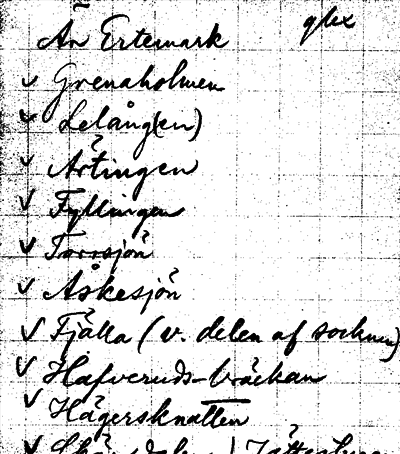 glex
Än Ertemark
✓ Grenaholmen
✓ Lelång(en)
✓ Ärtingen
✓ Fyllingen
✓ Torrsjön
✓ Åskesjön
✓ Fjälla (v. delen af socknen)
✓ Hafveruds-bäcken
✓ Hägersknatten